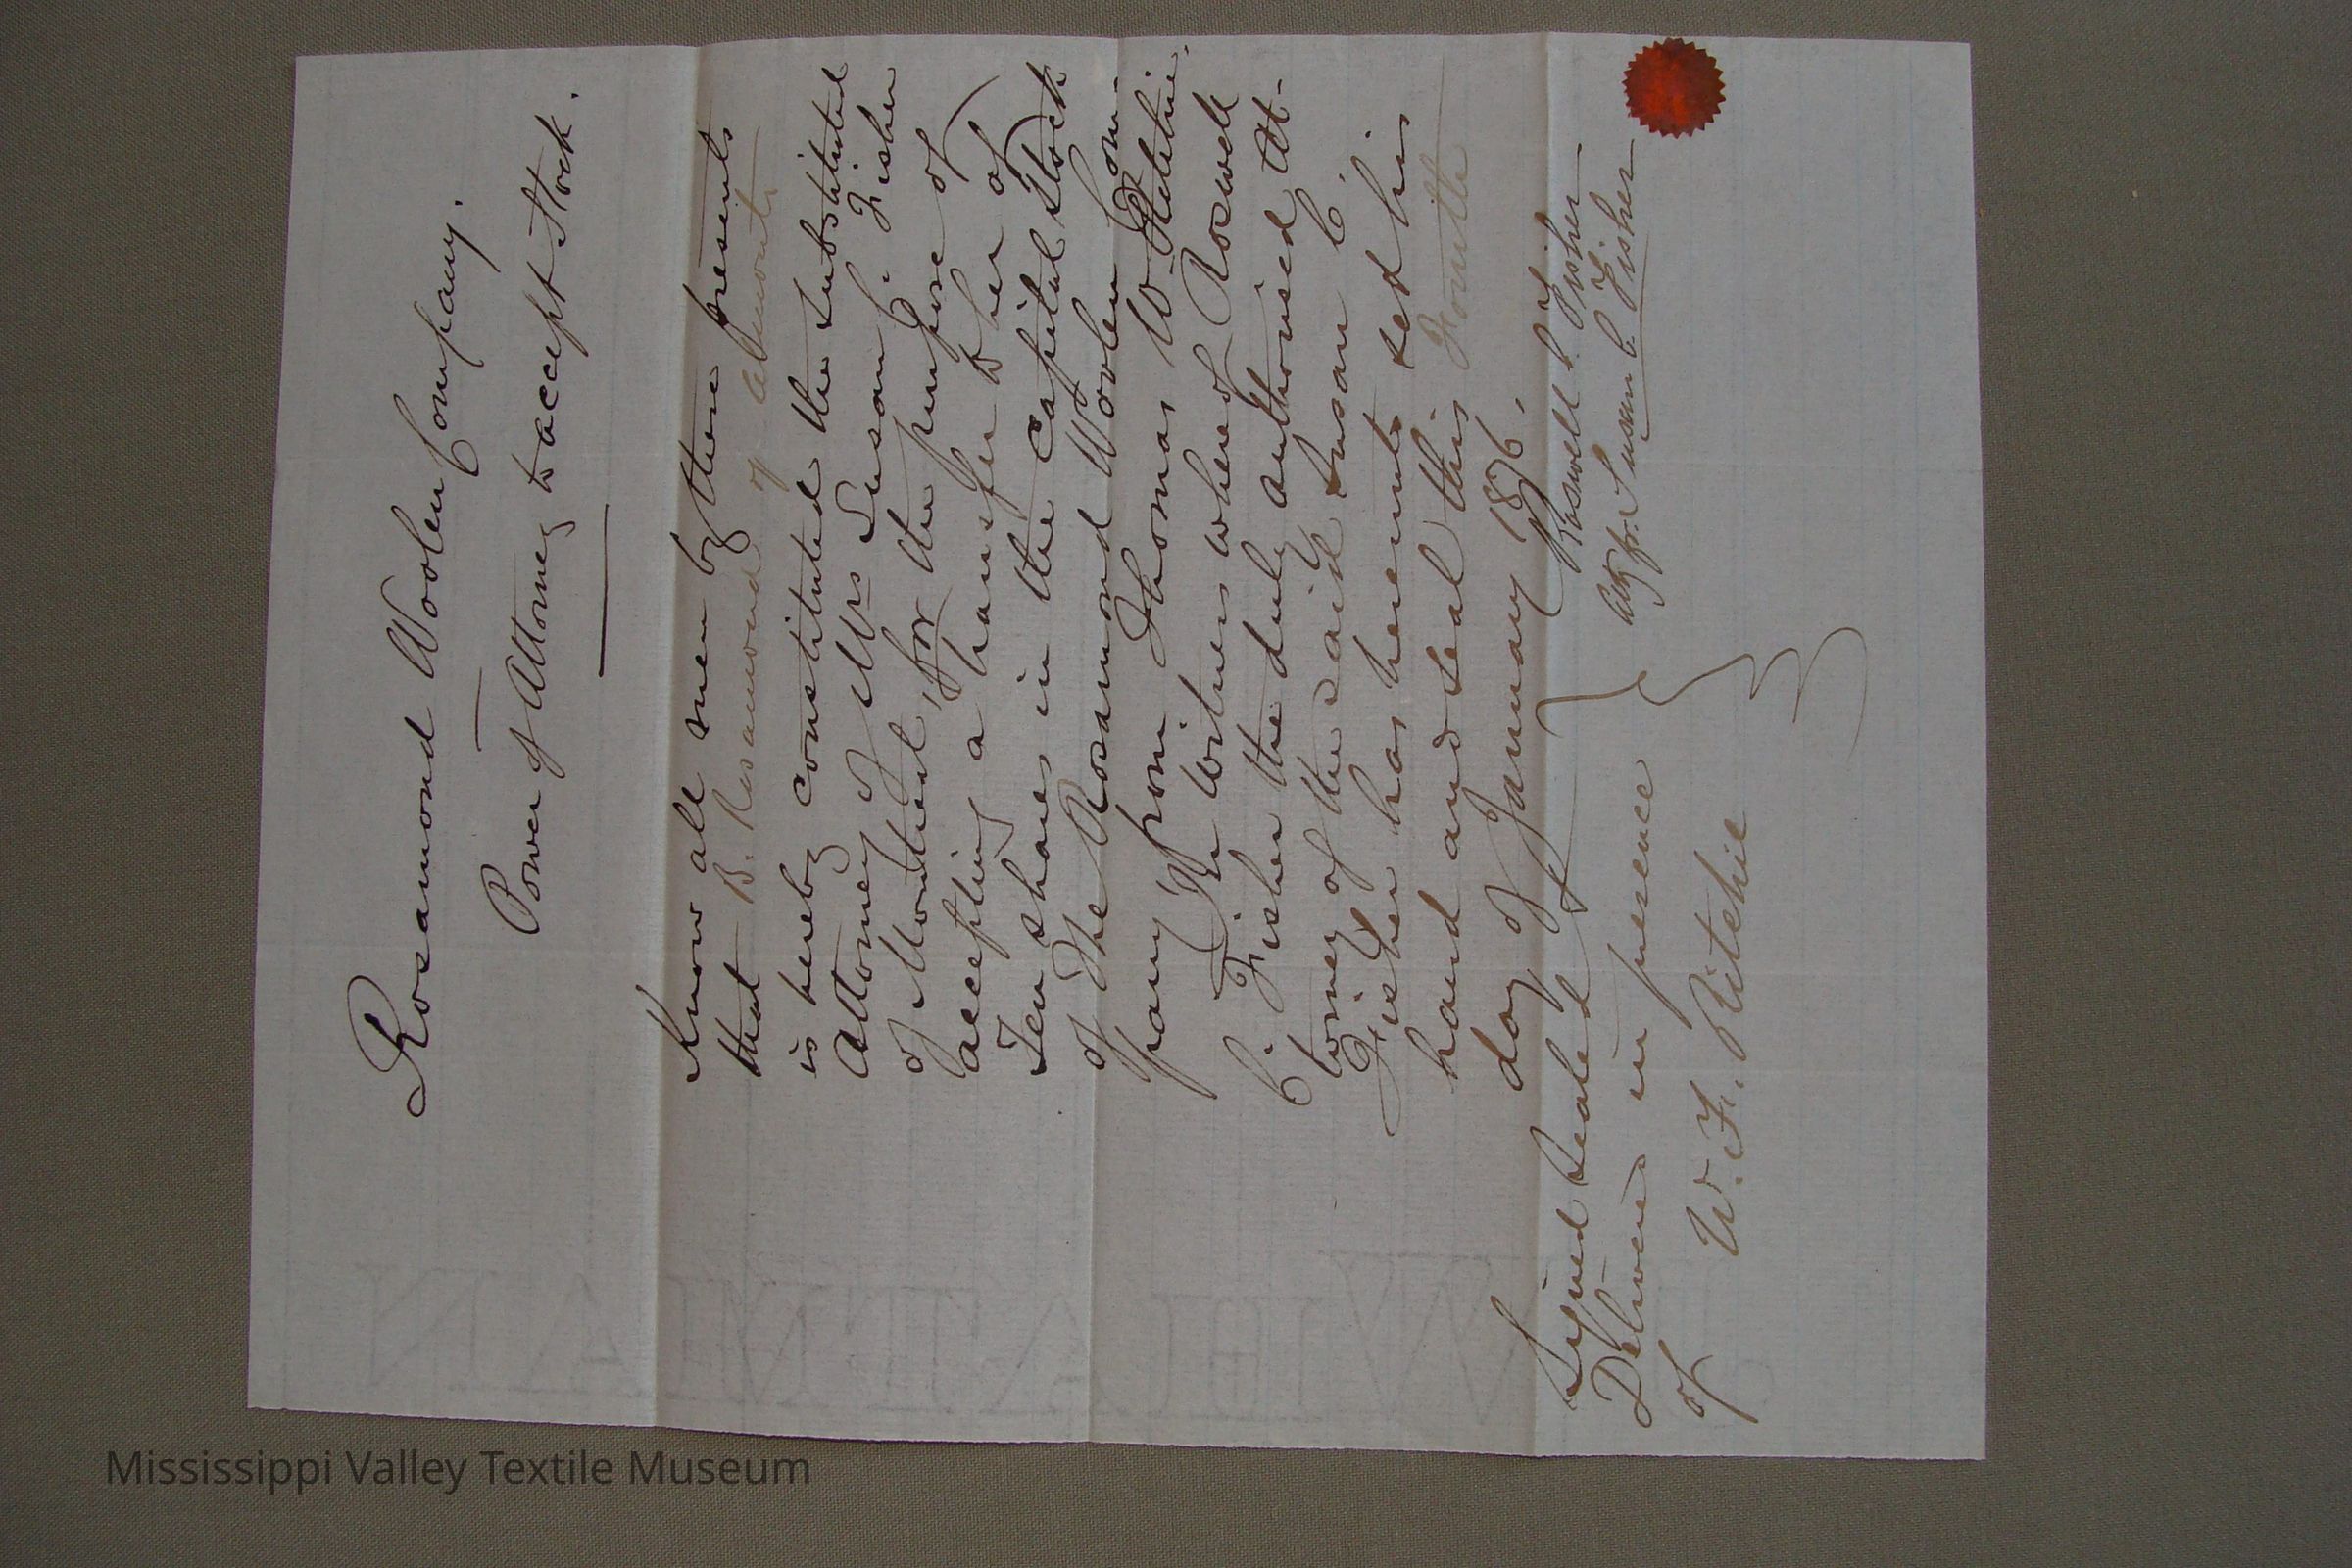 Rosamond Woolen Company.
Power of Attorney to accept Stock.
Know all men by these presents
that B. Rosamond of Almonte
is hereby constituted the substituted
Attorney of Mrs Susan C. Fisher
of Montreal, for the purpose of
accepting a transfer to her of
Ten shares in the capital stock
of The Rosamond Woolen Com-
pany from Thomas W. Ritchie.
In witness whereof Roswell
C. Fisher the duly authorised At-
torney of the said Susan C.
Fisher has hereunto set his
hand and seal this Fourth
day of January 1876.
Signed sealed &
Delivered in presence
of
W. F. Ritchie
Roswell C. Fisher
Atty for Susan C. Fisher
Mississippi Valley Textile Museum